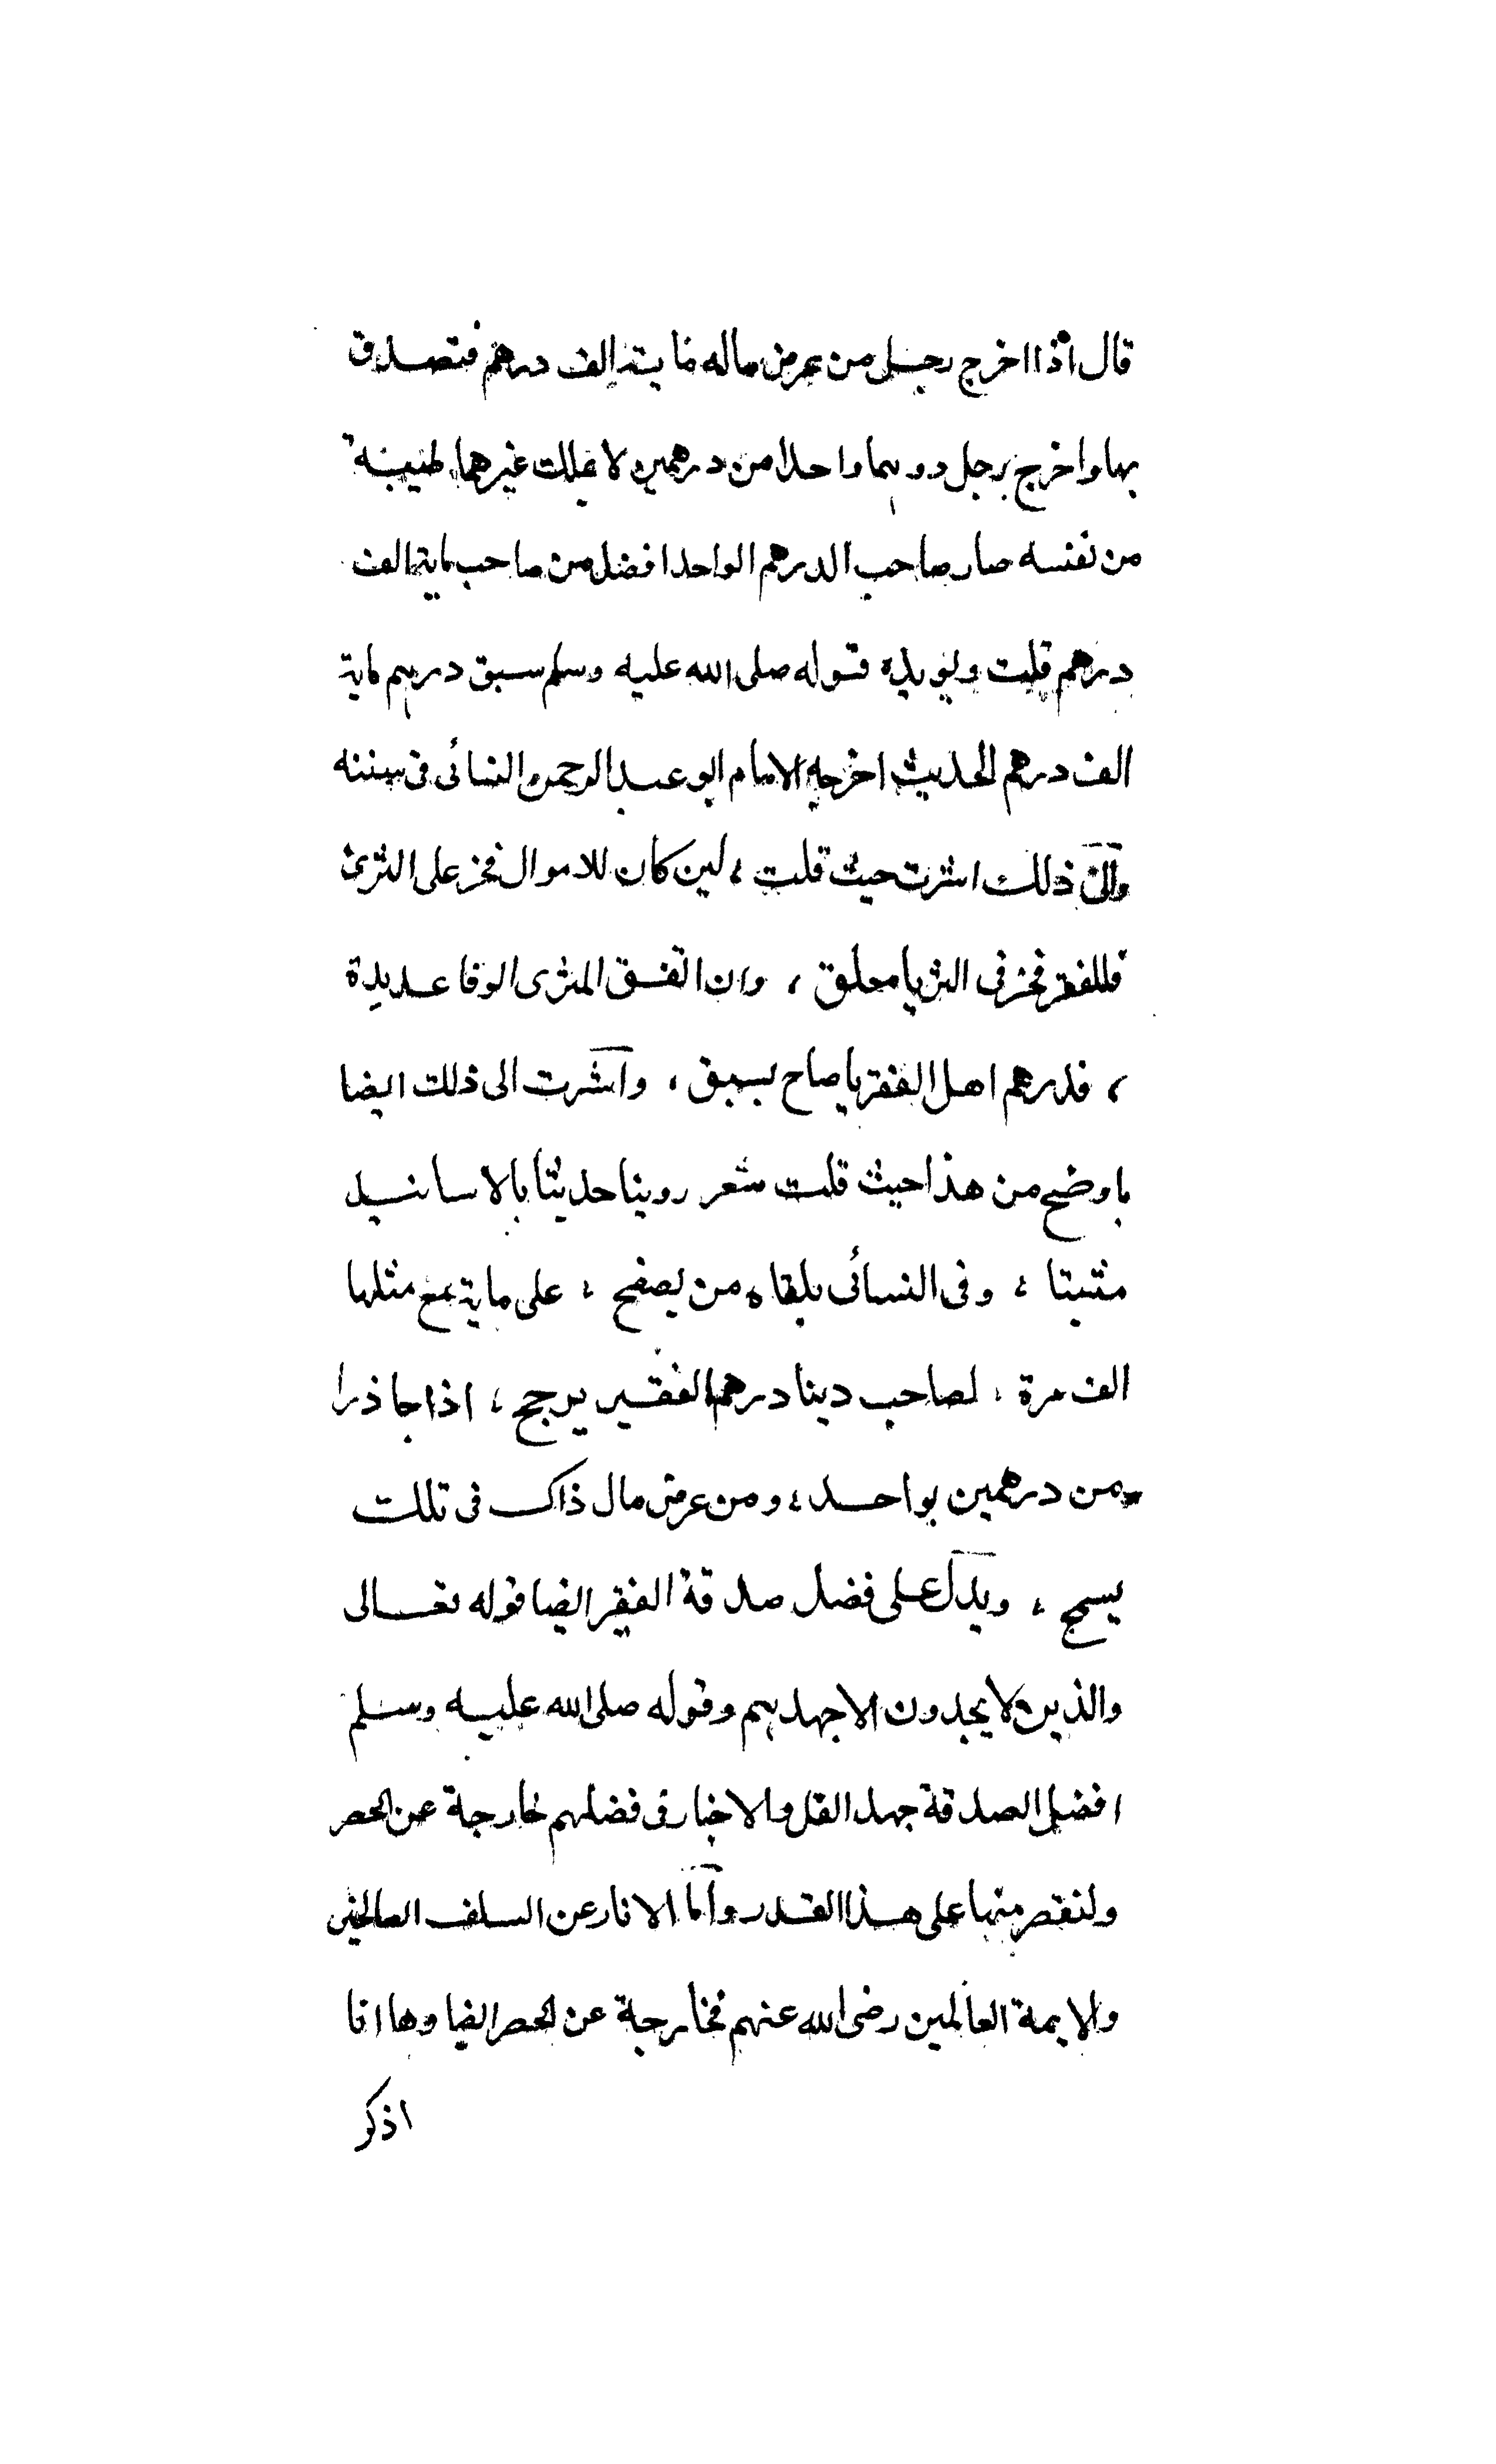 قال اذا اخرج رجل من عرض ماله ماية الف درهم فتصدق
بها واخرج رجل درهما واحدا من درهمين لا يملك غيرهما طيبة
من نفسه صار صاحب الدرهم الواحد افضل من صاحب ماية الف
درهم قلت ويويده قوله صلى الله عليه وسلم سبق درهم ماية
الف درهم الحديث اخرجه الامام ابو عبد الرحمن النسائى فى سننه
والى ذلك اشرت حيث قلت ، لين كان للاموال فخر على الثرى
فللفقر فخر فى الثريا معلق ، وان انفق المثرى الوفا عديدة
، فدرهم اهل الفقر يا صاح يسبق ، واشرت الى ذلك ايضا
باوضح من هذا حيث قلت شعر روينا حديثا بالاسانيد
مثبتا ، وفى النسائى يلقاه من يصفح ، على ماية مع مثلها
الف مرة ، لصاحب دينا درهم الفقير يرجح ، اذا جا ذرا
من درهمين بواحد ، ومن عرض مال ذاك فى تلك
يسمح ، ويدل على فضل صدقة الفقير ايضا قوله تعالى
والذين لا يجدون الا جهدهم وقوله صلى الله عليه وسلم
افضل الصدقة جهد المقل والاخبار فى فضلهم خارجة عن الحصر
ولنقتصر منها على هذا القدر واما الاثار عن السلف الصالحين
والايمة العالمين رضى الله عنهم فخارجة عن الحصر ايضا وها انا
اذكر